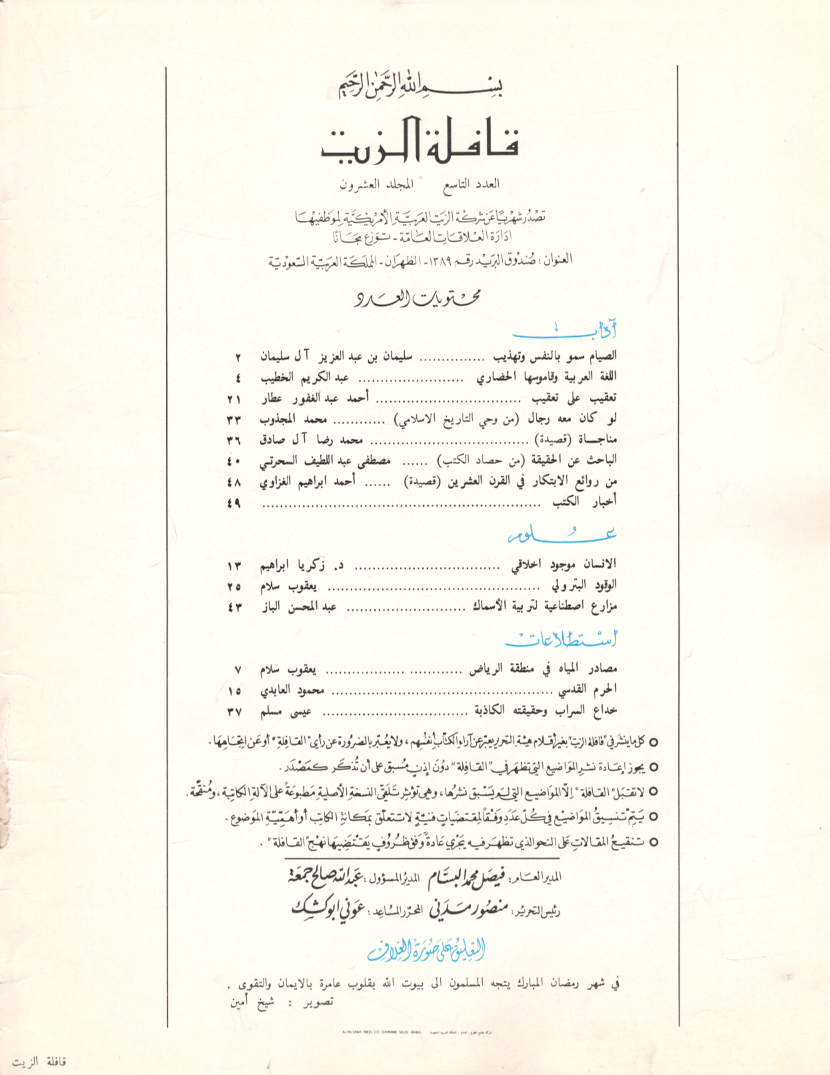 بسم الله الرحمن الرحيم
قافلة الزيت
العدد التاسع المجلد العشرون
تصدر شهريًا عن شركة الزيت العربية الأمريكية لموظفيها
ادارة العلاقات العامة - توزع مجانًا
العنوان: صندوق البريد رقم ١٣٨٩ - الظهران - المملكة العربية السعودية
محتويات العدد
آداب
الصيام سمو بالنفس وتهذيب ............... سليمان بن عبد العزيز آل سليمان ٢
اللغة العربية وقاموسها الحضاري ........................ عبد الكريم الخطيب ٤
تعقيب على تعقيب ................................. أحمد عبد الغفور عطار ٢١
لو كان معه رجال (من وحي التاريخ الاسلامي) ............ محمد المجذوب ٣٣
مناجاة (قصيدة) .................................... محمد رضا آل صادق ٣٦
الباحث عن الحقيقة (من حصاد الكتب) ...... مصطفى عبد اللطيف السحرتي ٤٠
من روائع الابتكار في القرن العشرين (قصيدة) ...... أحمد ابراهيم الغزاوي ٤٨
أخبار الكتب ............................................................... ٤٩
علوم
الانسان موجود اخلاقي ................................. د. زكريا ابراهيم ١٣
الوقود البترولي ................................................ يعقوب سلام ٢٥
مزارع اصطناعية لتربية الأسماك ........................... عبد المحسن الباز ٤٣
استطلاعات
مصادر المياه في منطقة الرياض ............ .................. يعقوب سلام ٧
الحرم القدسي .................................................. محمود العابدي ١٥
خداع السراب وحقيقته الكاذبة ................................. عيسى مسلم ٣٧
○ كل ما ينشر في "قافلة الزيت" بغير أقلام هيئة التحرير يعبر عن آراء الكتاب أنفسهم، ولا يعبر بالضرورة عن رأي "القافلة" أو عن اتجاهها.
○ يجوز إعادة نشر المواضيع التي تظهر في "القافلة" دون إذن مسبق على أن تذكر كمصدر.
○ لا تقبل "القافلة" إلا المواضيع التي لم يسبق نشرها، وهي تؤثر تلقي النسخة الأصلية مطبوعة على الآلة الكاتبة، ومنقحة.
○ يتم تنسيق المواضيع في كل عدد وفقًا لمقتضيات فنية لا تتعلق بمكانة الكاتب أو أهمية الموضوع.
○ تنقيح المقالات على النحو الذي تظهر فيه يجري عادة وفق ظروف يقتضيها نهج "القافلة".
المدير العام: فيصل محمد البسام المدير المسؤول: عبد الله صالح جمعة
رئيس التحرير: منصور مدني المحرر المساعد: عوني ابو كشك
التعليق على صورة الغلاف
في شهر رمضان المبارك يتجه المسلمون الى بيوت الله بقلوب عامرة بالايمان والتقوى .
تصوير : شيخ أمين
قافلة الزيت